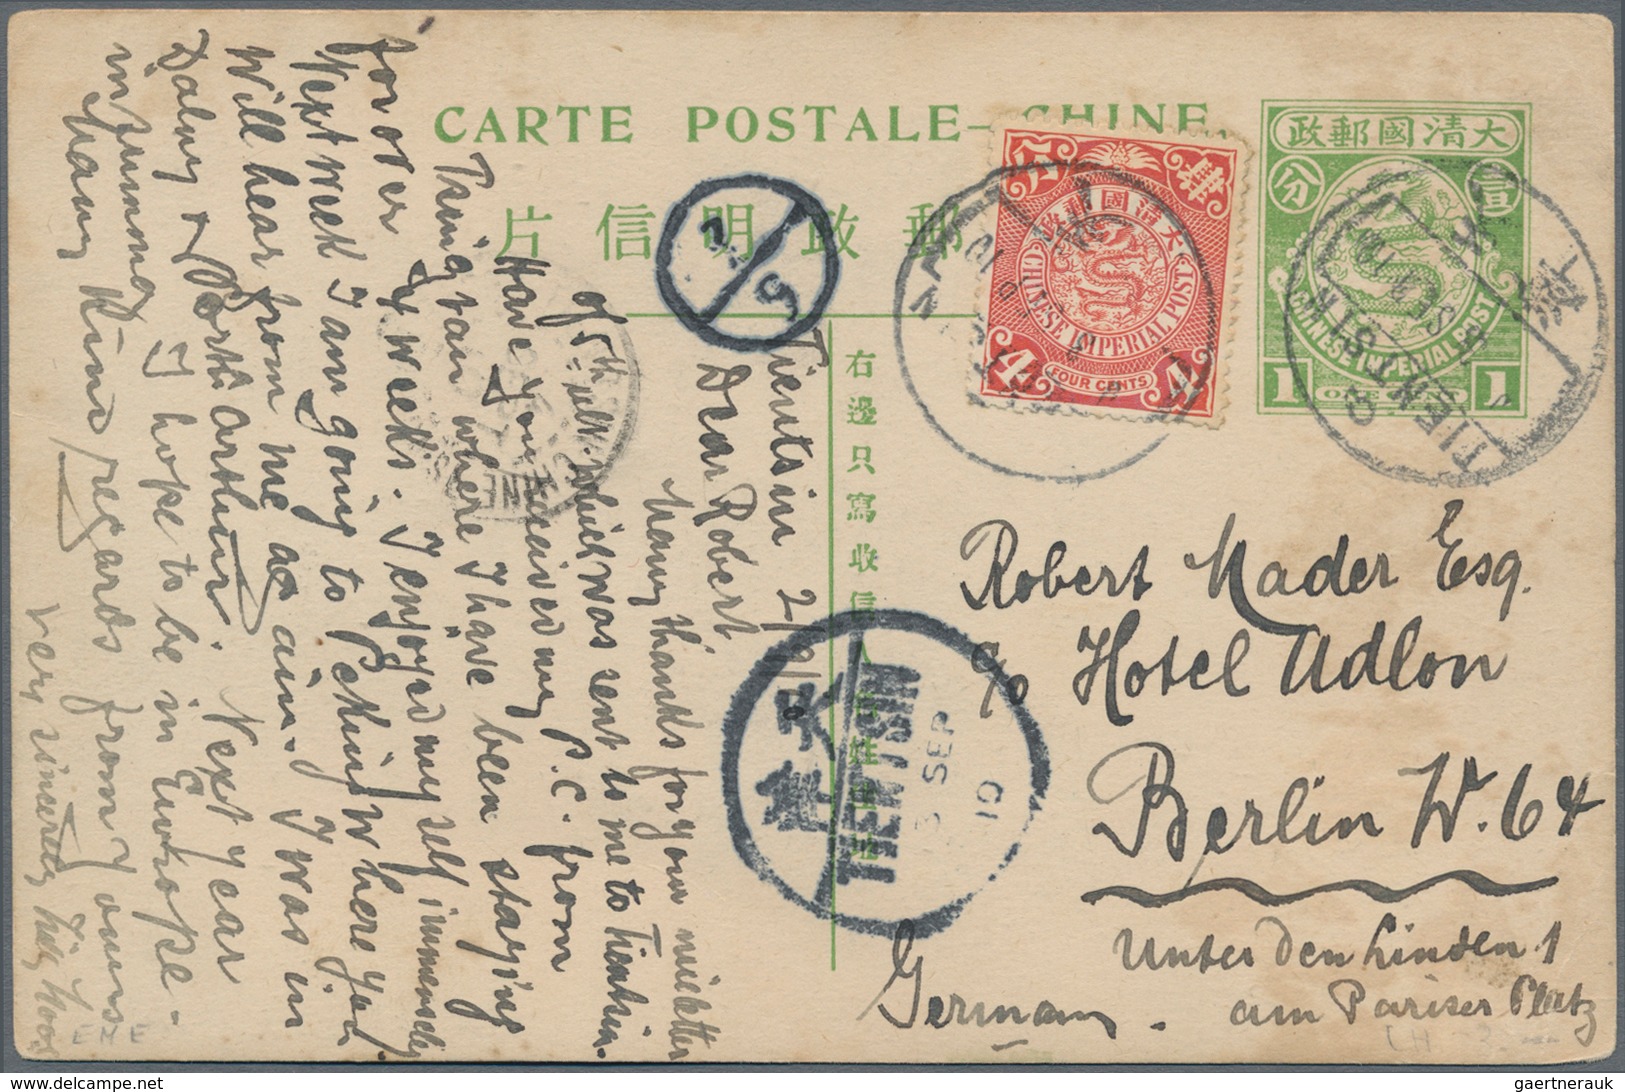 CARTE POSTALE–CHINE.
片信明政郵
右邊只寫收信人名姓住址
大清國郵政
壹
分
CHINESE IMPERIAL POST
1 ONE CENT 1
大清國郵政
肆
分
CHINESE IMPERIAL POST
4 FOUR CENTS 4
TIENTSIN
SEP 10
天津
TIENTSIN
SEP
10
Tientsin 2/9/10
Dear Robert
Many thanks for your nice letter
of 5th ult. which was sent to me to Tientsin.
Have you received my P.C. from
Tsingtau where I have been staying
for over 4 weeks. I enjoyed myself immensely
Next week I am going to Peking where you
will hear from me again. I was in
Dalny & Port Arthur. Next year
in I hope to be in Europe.
Many kind regards from yours
very sincerely
Robert Mader Esq.
c/o Hotel Adlon
Berlin W. 64
Unter den Linden 1
am Pariser Platz
Germany.
gaertnerauk